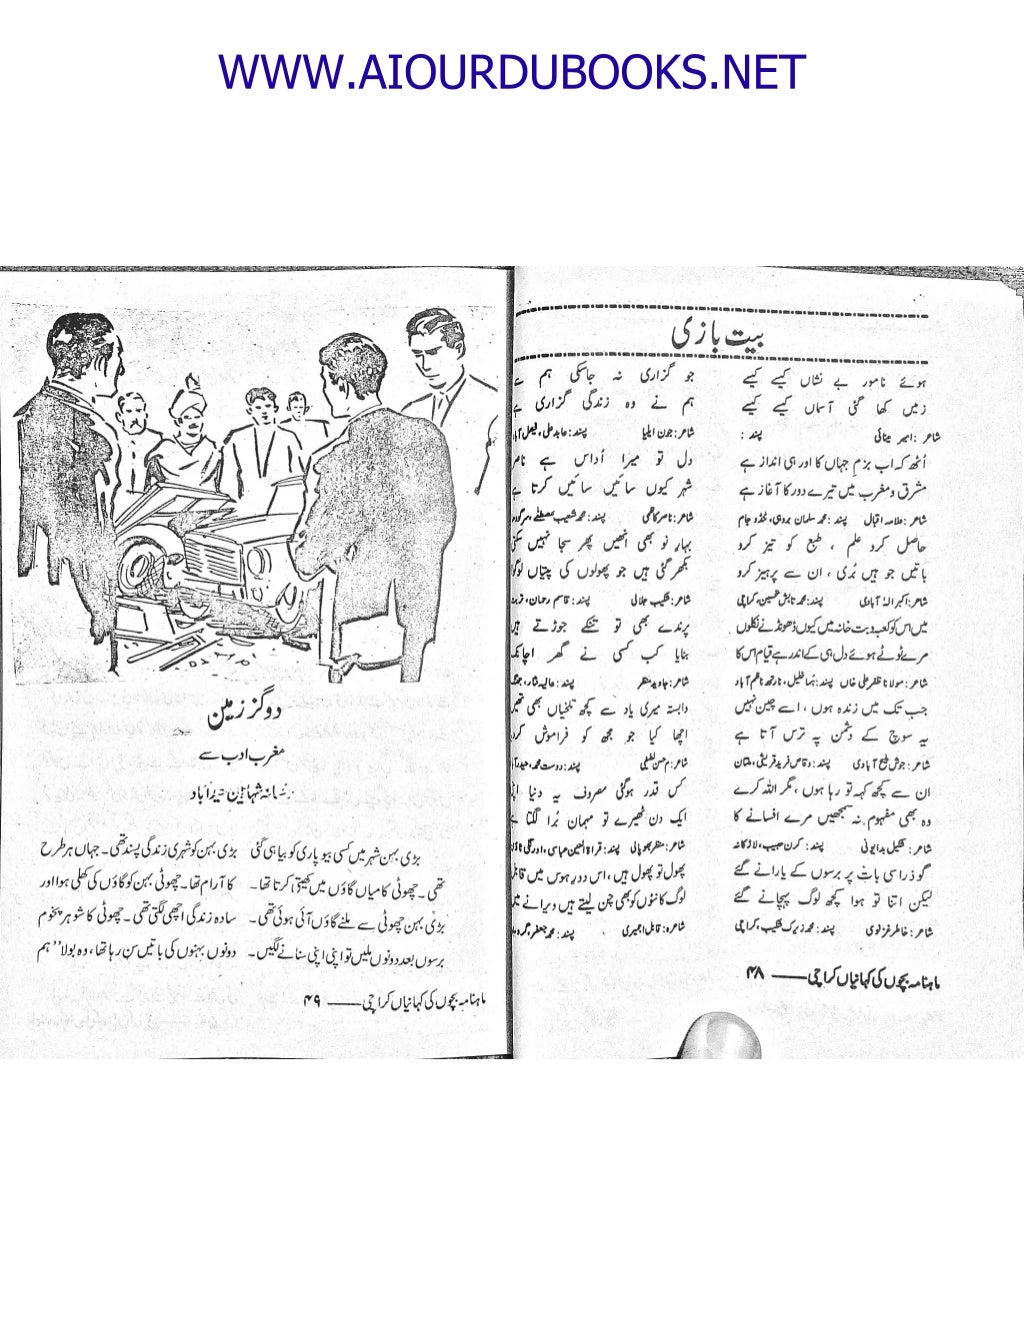 WWW.AIOURDUBOOKS.NET
بیت بازی
ہوئے نامور بے نشاں کیسے کیسے
زمیں کھا گئی آسماں کیسے کیسے
شاعر: امیر مینائی پسند:
اُٹھ کہ اب بزمِ جہاں کا اور ہی انداز ہے
مشرق و مغرب میں تیرے دور کا آغاز ہے
شاعر: علامہ اقبال پسند: محمد سلمان بروہی، ٹنڈو جام
حاصل کرو علم ، طبع کو تیز کرو
باتیں جو ہیں بُری ، ان سے پرہیز کرو
شاعر: اکبر الٰہ آبادی پسند: محمد تابش حسین، کراچی
میں اس کو کعبہ و بت خانہ میں کیوں ڈھونڈنے نکلوں
مرے ٹوٹے ہوئے دل ہی کے اندر ہے قیام اس کا
شاعر: مولانا ظفر علی خاں پسند: نارتھ ناظم آباد
جب تک میں زندہ ہوں ، اسے چین نہیں
یہ سوچ کے دشمن پہ ترس آتا ہے
شاعر: جوش ملیح آبادی پسند: وقاص فرید قریشی، ملتان
ان سے کچھ کہہ تو رہا ہوں ، مگر اللہ کرے
وہ بھی مفہوم نہ سمجھیں مرے افسانے کا
شاعر: شکیل بدایونی پسند: کرن حبیب، لاڑکانہ
گو ذرا سی بات پر برسوں کے یارانے گئے
لیکن اتنا تو ہوا کچھ لوگ پہچانے گئے
شاعر: خاطر غزنوی پسند: محمد زیرک شکیب، کراچی
جو گزاری نہ جاسکی ہم
ہم نے وہ زندگی گزاری
شاعر: جون ایلیا پسند: عابد علی، فیصل
دل تو میرا اُداس ہے
شہر کیوں سائیں سائیں کرتا
شاعر: ناصر کاظمی پسند: محمد شعیب مصطفیٰ،
بہارِ نو بھی انھیں پھر سجا نہیں
بکھر گئی ہیں جو پھولوں کی پتیاں
شاعر: شکیب جلالی پسند: قاسم رحمان،
پرندے بھی تو تنکے جوڑتے
بنایا کب کسی نے گھر
شاعر: جاوید منظر پسند: عالیہ نثار،
وابستہ میری یاد سے کچھ تلخیاں بھی
اچھا کیا جو مجھ کو فراموش
شاعر: پسند: دوست محمد،
کس قدر ہوگئی مصروف یہ دنیا
ایک دن ٹھہرے تو مہمان بُرا لگتا
شاعر: منظر بھوپالی پسند: قراۃ العین عباسی، اورنگی
پھول تو پھول ہیں ، اس دورِ ہوس میں
لوگ کانٹوں کو بھی چن لیتے ہیں ویرانے
شاعرہ: قابل اجمیری پسند: محمد جعفر،
ماہنامہ بچوں کی کہانیاں کراچی ۴۸
دو گز زمین
مغرب ادب سے
شہانہ شہابین حیدرآباد
بڑی بہن شہر میں کسی بیوپاری کو بیاہی گئی
تھی۔ چھوٹی کا میاں گاؤں میں کھیتی کرتا تھا۔
بڑی بہن چھوٹی سے ملنے گاؤں آئی ہوئی تھی۔
برسوں بعد دونوں ملیں تو اپنی اپنی سنانے لگیں۔
بڑی بہن کو شہری زندگی پسند تھی۔ جہاں ہر طرح
کا آرام تھا۔ چھوٹی بہن کو گاؤں کی کھلی ہوا اور
سادہ زندگی اچھی لگتی تھی۔ چھوٹی کا شوہر پخوم
دونوں بہنوں کی باتیں سن رہا تھا، وہ بولا "ہم
ماہنامہ بچوں کی کہانیاں کراچی ۴۹